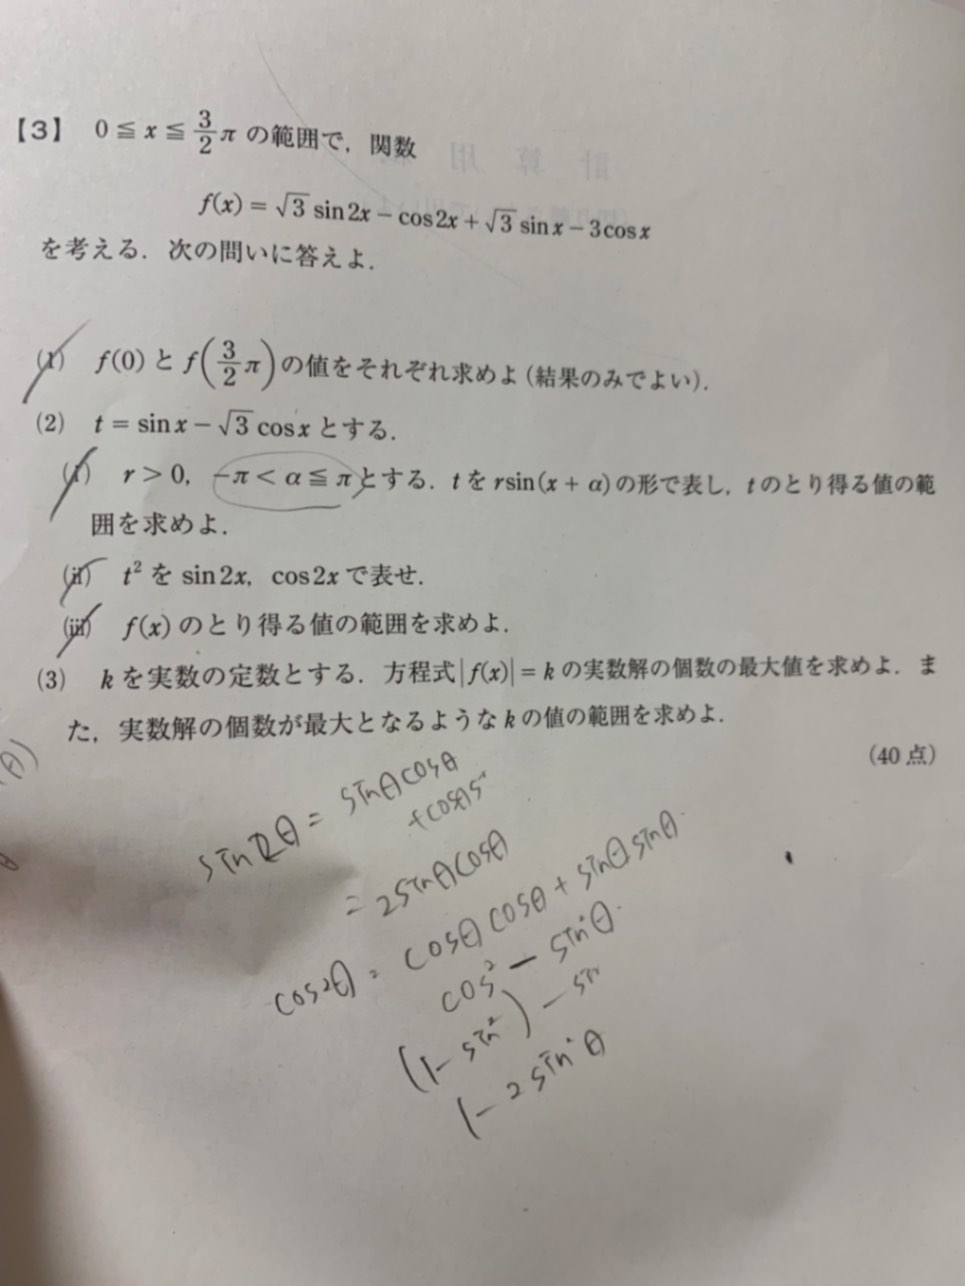 【3】 0≦x≦3/2π の範囲で，関数
f(x)=√3 sin2x－cos2x＋√3 sinx－3cosx
を考える．次の問いに答えよ．
(1) f(0) と f(3/2π) の値をそれぞれ求めよ (結果のみでよい)．
(2) t = sinx－√3 cosx とする．
(i) r＞0, －π＜α≦π とする．t を rsin(x + α) の形で表し，t のとり得る値の範
囲を求めよ．
(ii) t² を sin2x, cos2x で表せ．
(iii) f(x) のとり得る値の範囲を求めよ．
(3) k を実数の定数とする．方程式 |f(x)| = k の実数解の個数の最大値を求めよ．ま
た，実数解の個数が最大となるような k の値の範囲を求めよ．
(40 点)
θ)
sin2θ = sinθcosθ
= 2sinθcosθ
cos2θ = cosθcosθ + sinθsinθ
cos² － sin²θ
(1－sin²) － sin
1－2sin²θ